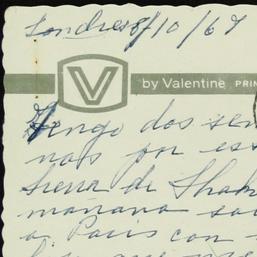 Londres 8/10/67
V
by Valentine PRIN
Tengo dos sem
nas por es
tierra de Shak
mañana sa
a Paris con